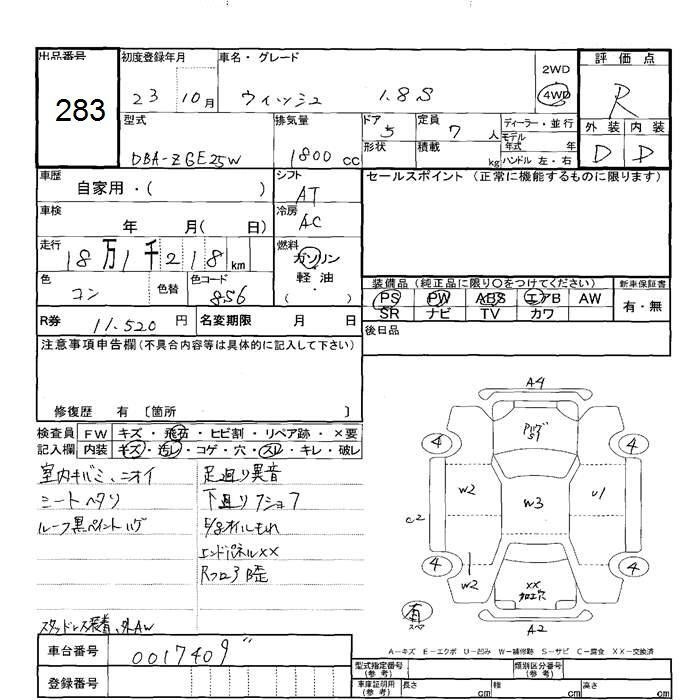 出品番号 初度登録年月 車名・グレード 2WD 評価点
283 23 10月 ウィッシュ 1.8S 4WD R
型式 排気量 ドア 定員 ディーラー・並行 外装 内装
5 7 人 モデル年式 年 D D
DBA-ZGE25W 1800 cc 形状 積載 kg ハンドル 左・右
車歴 シフト セールスポイント (正常に機能するものに限ります)
自家用・( ) AT
車検 冷房
年 月( 日) AC
走行 燃料
18万1千218km ガソリン
色 色替 色コード 軽油 装備品 (純正品に限り○をつけてください) 新車保証書
コン 856 ・( ) PS PW ABS エアB AW 有・無
R券 11.520 円 名変期限 月 日 SR ナビ TV カワ
注意事項申告欄(不具合内容等は具体的に記入して下さい) 後日品
修復歴 有 〔箇所 〕
検査員 FW キズ・飛石・ヒビ割・リペア跡・×要
記入欄 内装 キズ・汚レ・コゲ・穴・スレ・キレ・破レ
室内キバミ、ニオイ 足廻り異音
シートヘタリ 下廻りフショク
ルーフ黒ペイントハゲ E/gオイルもれ
エンドパネルXX
スタッドレス装着、外AW
A4
4 4
W2 W3 U1
C2
4 4
W2 XX 加工穴
有 スペア A2
A-キズ E-エクボ U-凹み W-補修跡 S-サビ C-腐食 XX-交換済
車台番号 0017409
登録番号
型式指定番号(参考) 類別区分番号(参考)
車庫証明用(参考) 長さ cm 幅 cm 高さ cm